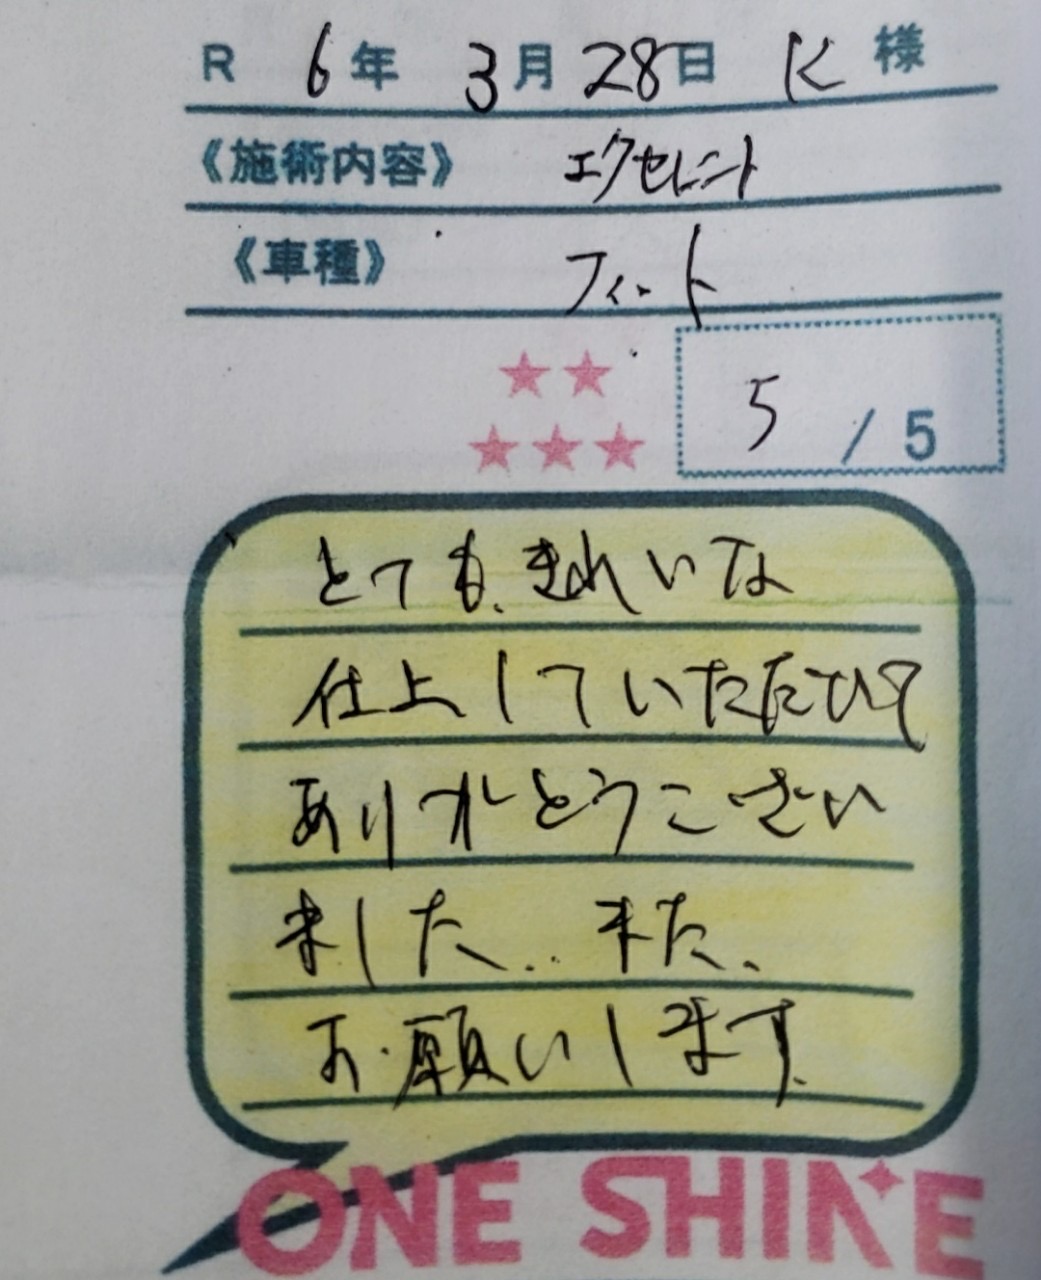 R 6年 3月 28日 K 様
《施術内容》 エクセレント
《車種》 フィット
5 / 5
とても、きれいな
仕上していただいて
ありがとうござい
ました。また、
お願いします。
ONE SHINE